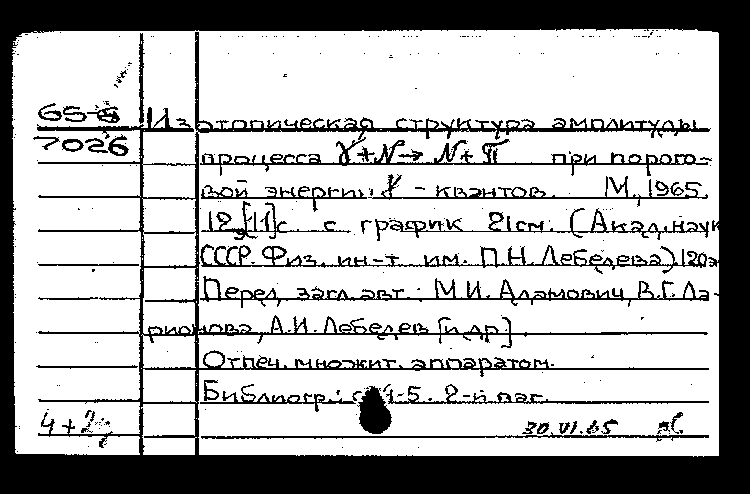 65-6
7026
Изотопическая структура амплитуды
процесса γ+N→N+π при порого-
вой энергии γ - квантов. М., 1965.
12, [11] с. с график 21 см. (Акад. наук
СССР. Физ. ин-т им. П.Н. Лебедева). 120 э
Перед загл. авт.: М.И. Адамович, В.Г. Ла-
рионова, А.И. Лебедев [и др].
Отпеч. множит. аппаратом.
Библиогр.: с. 4-5. 2-й паг.
4+2
30.VI.65